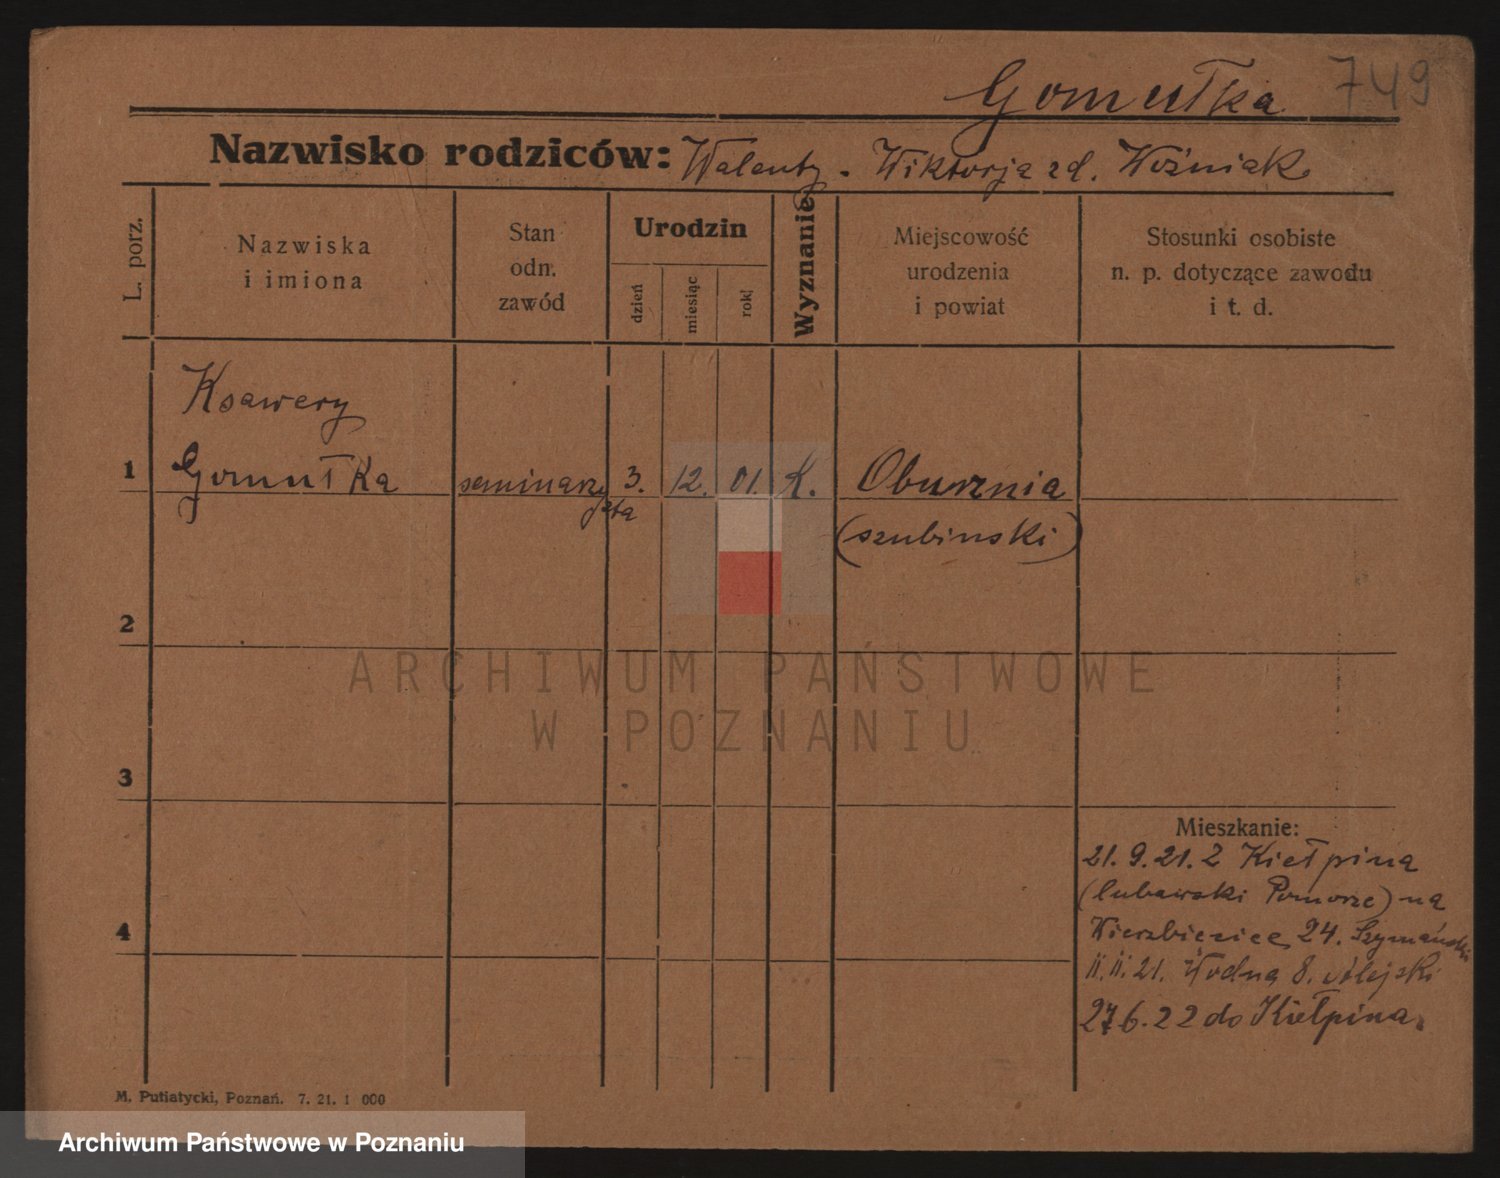 Gomułka 749
Nazwisko rodziców: Walenty - Wiktorja zd. Woźniak
L. porz.
Nazwiska
i imiona
Stan
odn.
zawód
Urodzin
dzień
miesiąc
rok
Wyznanie
Miejscowość
urodzenia
i powiat
Stosunki osobiste
n. p. dotyczące zawodu
i t. d.
Ksawery
1 Gomułka seminarzy 3. 12. 01. K. Obusznia
sta (szubinski)
2
3
4
ARCHIWUM PAŃSTWOWE
W POZNANIU
Mieszkanie:
21.9.21. z Kiełpina
(lubawski Pomorze) na
Wierzbięcice 24. Szymański
11.11.21. Wodna 8. Alejski
27.6.22 do Kiełpina.
M. Putiatycki, Poznań. 7. 21. 1 000
Archiwum Państwowe w Poznaniu